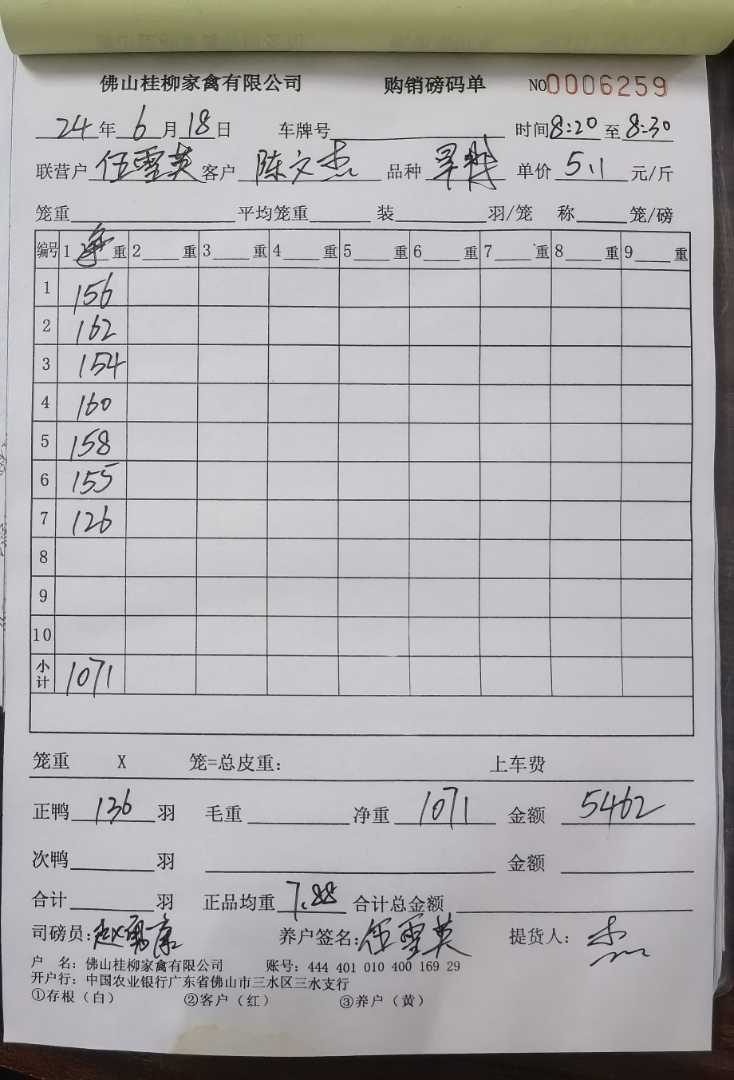 佛山桂柳家禽有限公司 购销磅码单 NO0006259
24年6月18日 车牌号 时间8:20至8:30
联营户 伍雪英 客户 陈文杰 品种 单价 5.1 元/斤
笼重 平均笼重 装 羽/笼 称 笼/磅
编号 1 净 重 2 重 3 重 4 重 5 重 6 重 7 重 8 重 9 重
1 156
2 162
3 154
4 160
5 158
6 155
7 126
8
9
10
小计 1071
笼重 X 笼=总皮重: 上车费
正鸭 136 羽 毛重 净重 1071 金额 5462
次鸭 羽 金额
合计 羽 正品均重 7.88 合计总金额
司磅员: 赵勇康 养户签名: 伍雪英 提货人: 杰
户 名: 佛山桂柳家禽有限公司 账号: 444 401 010 400 169 29
开户行: 中国农业银行广东省佛山市三水区三水支行
①存根（白） ②客户（红） ③养户（黄）